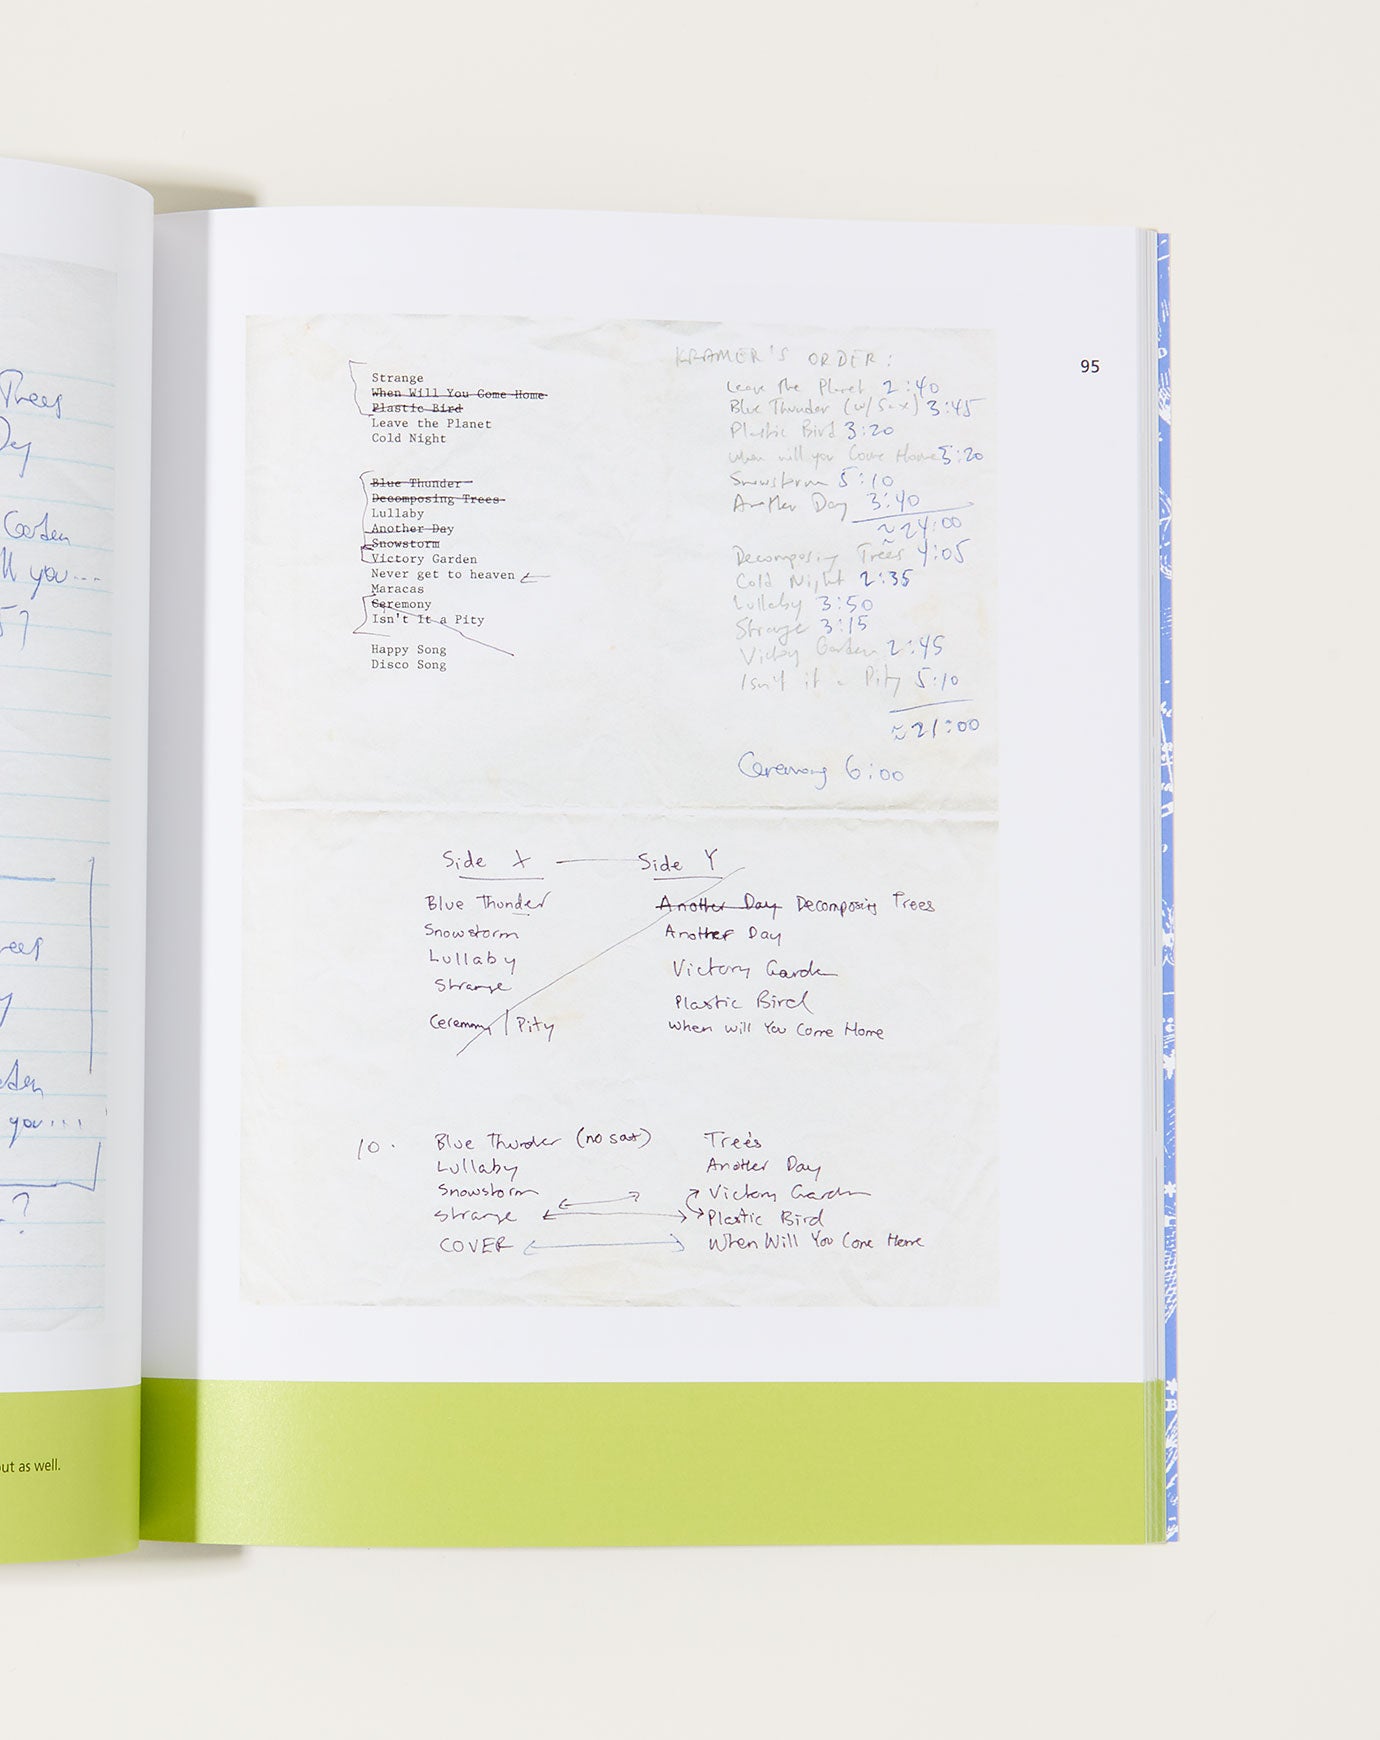 Trees
Day
Garden
ll you...
5?
rees
y
rden
you...
?
ut as well.
95
Strange
When Will You Come Home
Plastic Bird
Leave the Planet
Cold Night
Blue Thunder
Decomposing Trees
Lullaby
Another Day
Snowstorm
Victory Garden
Never get to heaven
Maracas
Ceremony
Isn't It a Pity
Happy Song
Disco Song
KRAMER'S ORDER:
Leave The Planet 2:40
Blue Thunder (w/Sax) 3:45
Plastic Bird 3:20
when will you Come Home 3:20
Snowstorm 5:10
Another Day 3:40
≈24:00
Decomposing Trees 4:05
Cold Night 2:35
Lullaby 3:50
Strange 3:15
Victory Garden 2:45
Isn't it a Pity 5:10
≈21:00
Ceremony 6:00
Side X — Side Y
Blue Thunder
Snowstorm
Lullaby
Strange
Ceremony / Pity
Another Day Decomposing Trees
Another Day
Victory Garden
Plastic Bird
When Will You Come Home
10.
Blue Thunder (no sax)
Lullaby
Snowstorm
Strange
COVER
Trees
Another Day
Victory Garden
Plastic Bird
When Will You Come Home